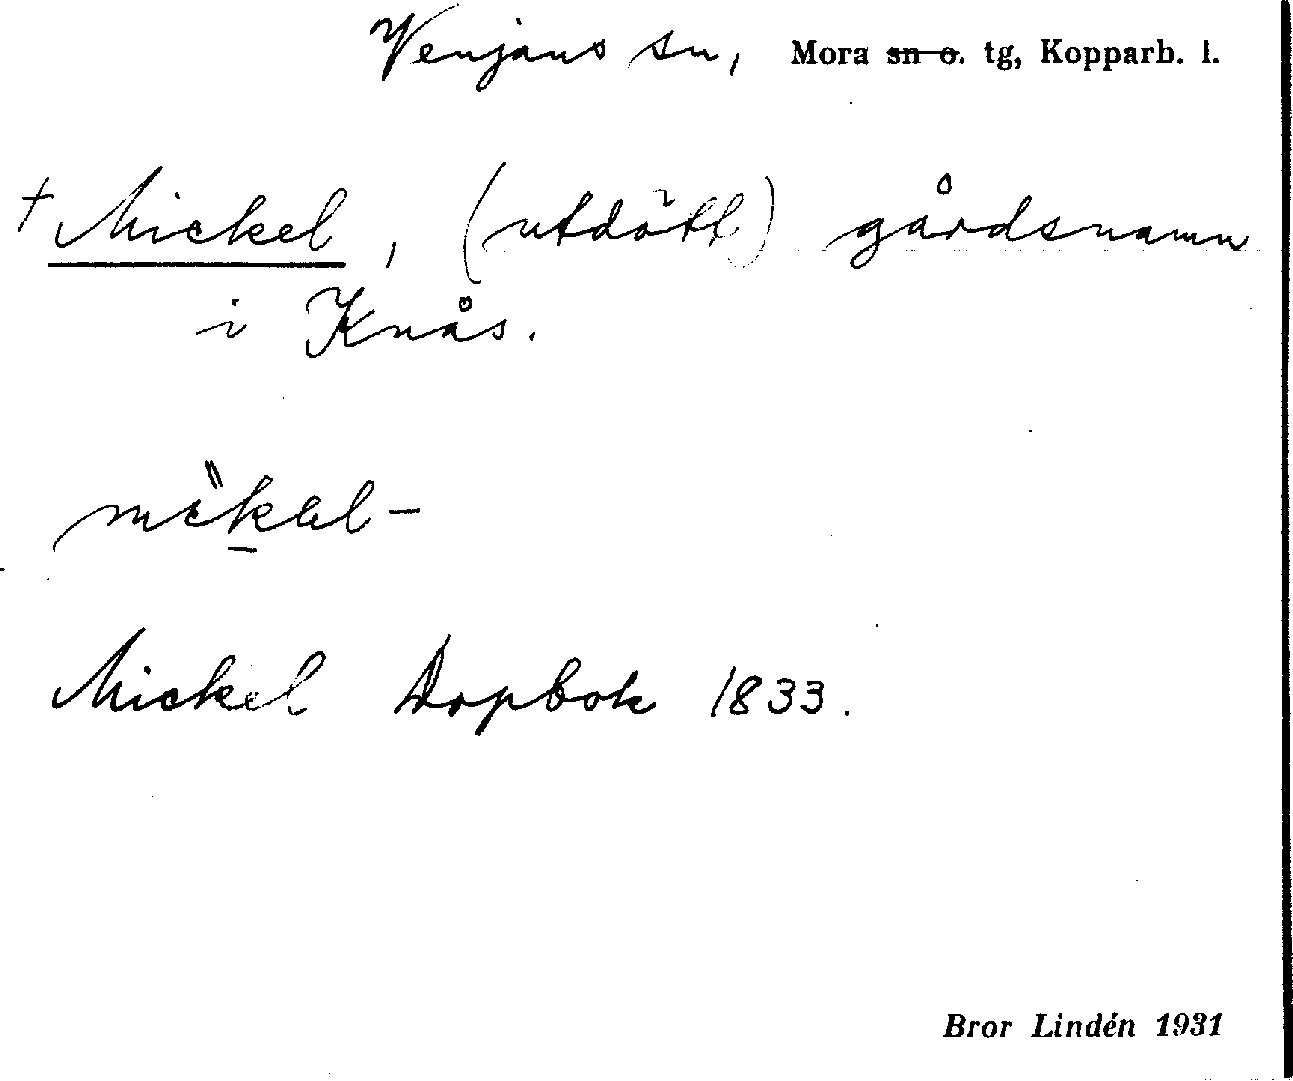 Venjans sn, Mora sn o. tg, Kopparb. l.
+ Mickel, (utdött) gårdsnamn
i Knås.
Mickel Dopbok 1833.
Bror Lindén 1931